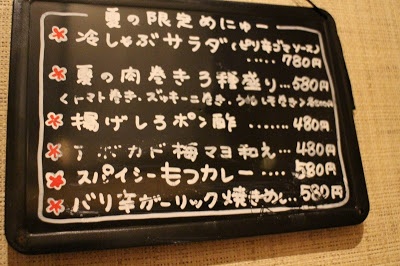 夏の限定めにゅー
冷しゃぶサラダ(ピリ辛ゴマソース)
..... 780円
夏の肉巻き3種盛り...580円
くトマト巻き、ズッキーニ巻き、
揚げしろポン酢 ....... 480円
アボカド梅マヨ和え...480円
スパイシーもつカレー .... 580円
バリ辛ガーリック焼きめし...580円